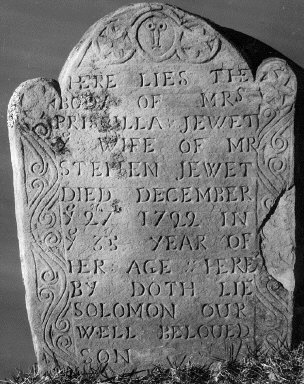 HERE LIES THE
BODY OF MRS
PRISCILLA JEWET
Y WIFE OF MR
STEPHEN JEWET
DIED DECEMBER
Y 27 1722 IN
Y 35 YEAR OF
HER AGE HERE
BY DOTH LIE
SOLOMON OUR
WELL BELOUED
SON